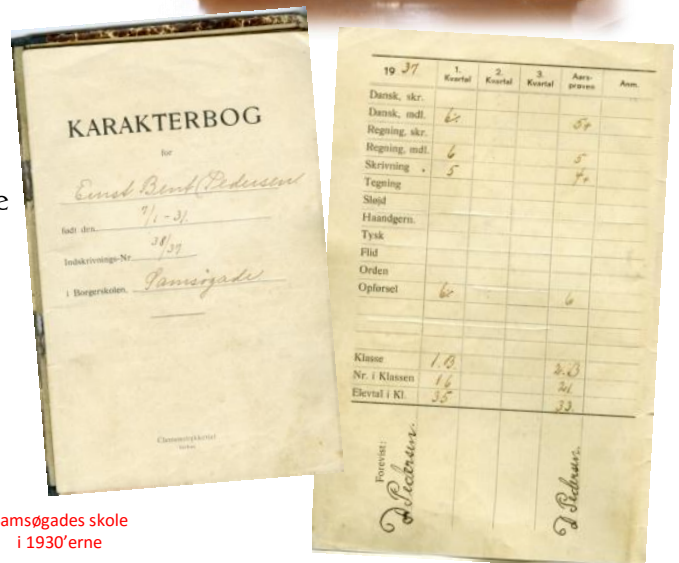 KARAKTERBOG
for
Ernst Bent Pedersen
født den 7/1 - 31
Indskrivnings-Nr 38/37
i Borgerskolen, Samsøgade
19 37 1. Kvartal 2. Kvartal 3. Kvartal Aars-prøven Anm.
Dansk, skr.
Dansk, mdl. 6÷ 5+
Regning, skr.
Regning, mdl. 6 5
Skrivning 5
Tegning
Sløjd
Haandgern.
Tysk
Flid
Orden
Opførsel 6
Klasse 1.B. 2.B
Nr. i Klassen 16 21
Elevtal i Kl. 35 33
Forevist: D Pedersen. D Pedersen.
e
amsøgades skole
i 1930'erne